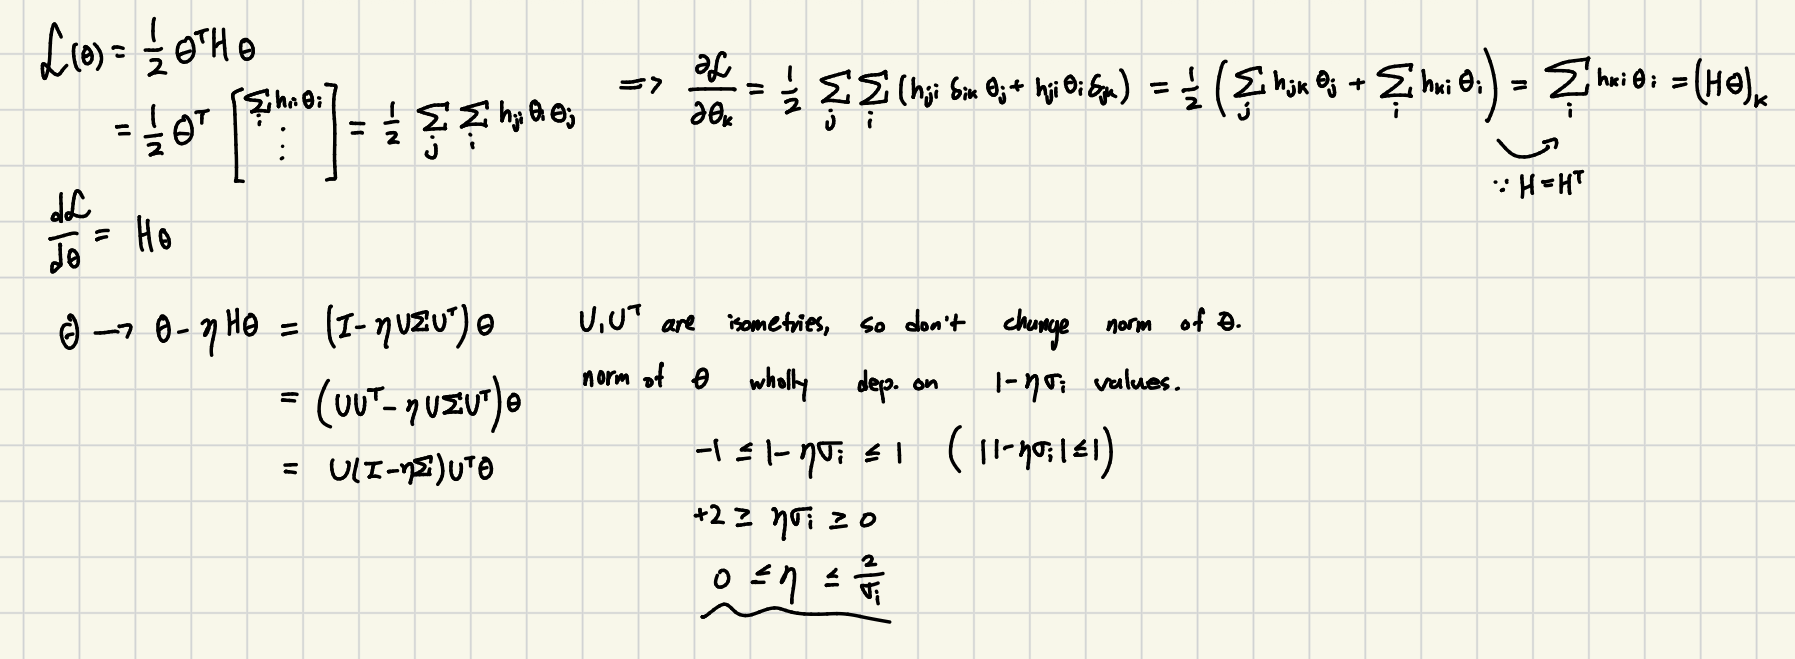 ℒ(θ) = 1/2 θᵀH θ
= 1/2 θᵀ [ Σ_i h_{1i} θ_i ⋮ ] = 1/2 Σ_j Σ_i h_{ji} θ_i θ_j
=> ∂ℒ/∂θ_k = 1/2 Σ_j Σ_i (h_{ji} δ_{ik} θ_j + h_{ji} θ_i δ_{jk}) = 1/2 ( Σ_j h_{jk} θ_j + Σ_i h_{ki} θ_i ) = Σ_i h_{ki} θ_i = (Hθ)_k
∵ H = Hᵀ
dℒ/dθ = Hθ
θ → θ - η Hθ = (I - η UΣUᵀ) θ
= (UUᵀ - η UΣUᵀ) θ
= U(I - ηΣ)Uᵀθ
U, Uᵀ are isometries, so don't change norm of θ.
norm of θ wholly dep. on 1 - ησ_i values.
-1 ≤ 1 - ησ_i ≤ 1 ( |1 - ησ_i| ≤ 1 )
+2 ≥ ησ_i ≥ 0
0 ≤ η ≤ 2/σ_i